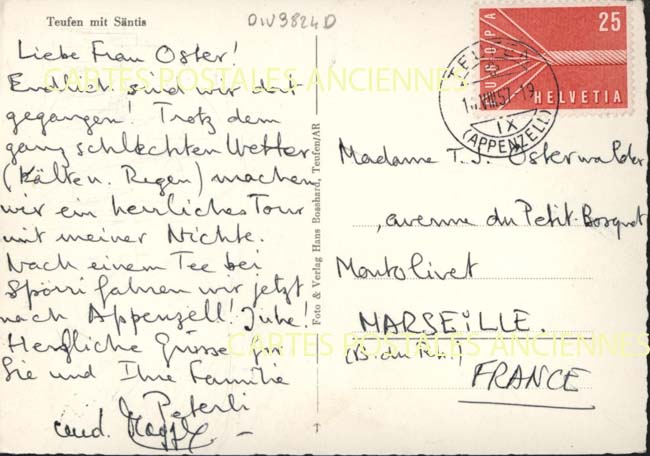 Teufen mit Säntis
DIV3824D
Liebe Frau Oster!
Endlich sind wir dort
gegangen! Trotz dem
ganz schlechten Wetter
(Kälte u. Regen) machen
wir ein herrliches Tour
mit meiner Nichte.
Nach einem Tee bei
Spörri fahren wir jetzt
nach Appenzell! Juhe!
Herzliche Grüsse für
Sie und Ihre Familie
Peterli
und
Foto & Verlag Hans Bosshard, Teufen/AR
CARTES POSTALES ANCIENNES
CARTES POSTALES ANCIENNES
EUROPA
25
HELVETIA
VIII.57-19
IX
(APPENZELL)
Madame T. J. Osterwalder
, avenue du Petit-Bosquet
Montolivet
MARSEILLE.
(B. du Rh.)
FRANCE